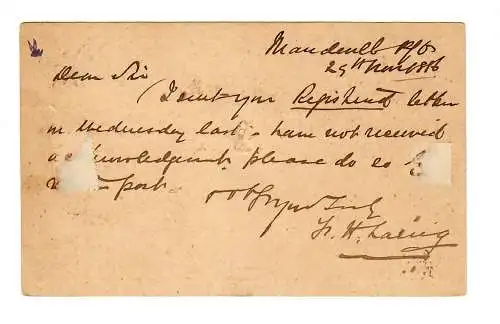 Mandeville P/O
29th Nov 1886
Dear Sir
I sent you Registered letter
on Wednesday last - have not received
acknowledgment please do so
post
H. Laing